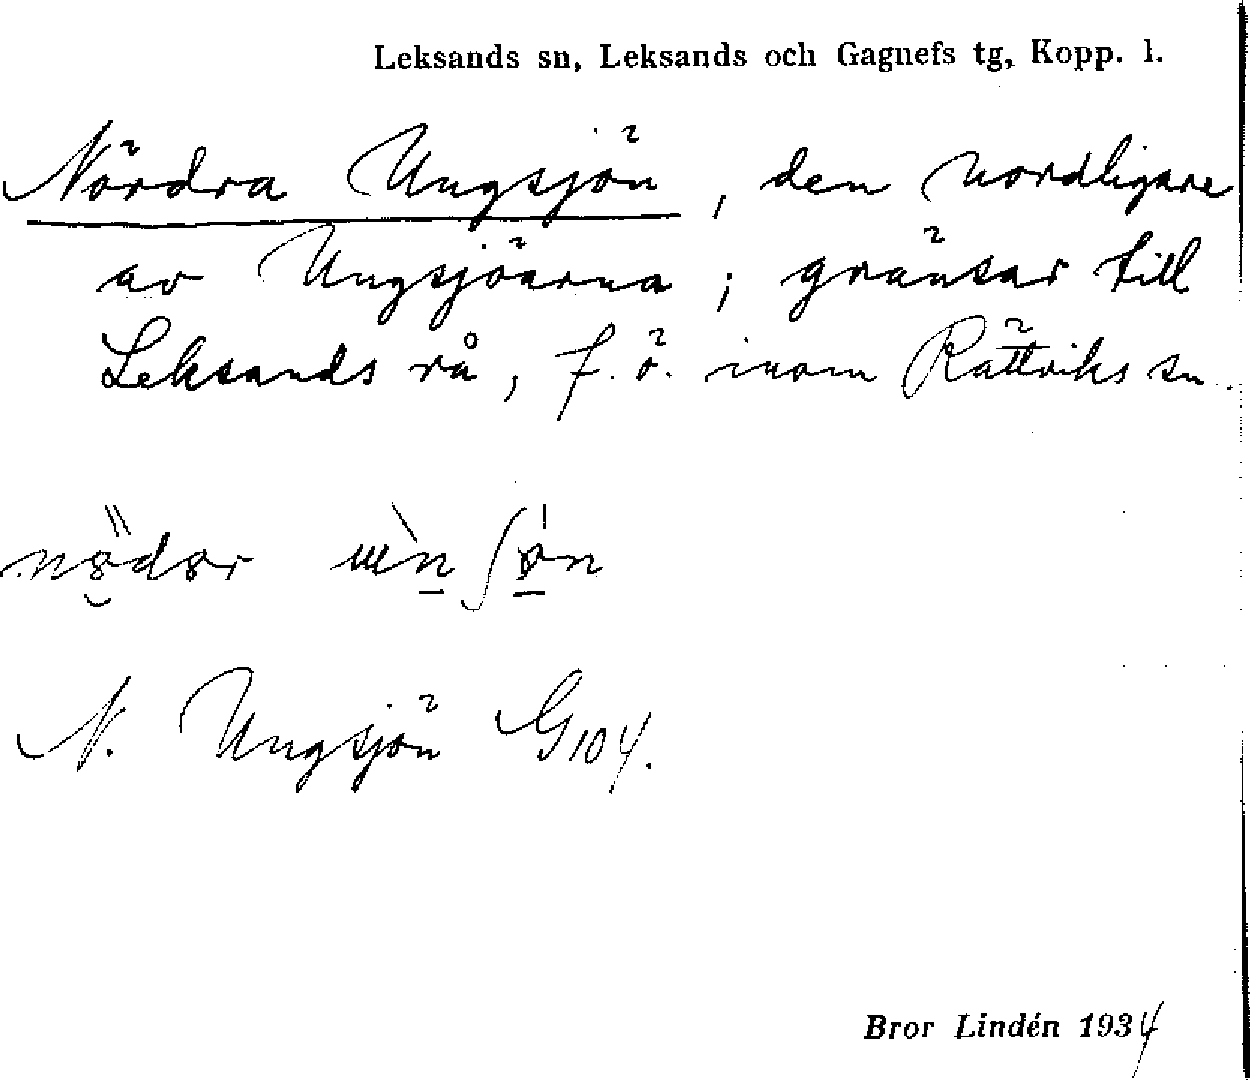 Leksands sn, Leksands och Gagnefs tg, Kopp. l.
Nördra Ungsjön, den nordligare
av Ungsjöarna; gränsar till
Leksands rå, f. ö. inom Rättviks sn.
N. Ungsjön G104.
Bror Lindén 1934